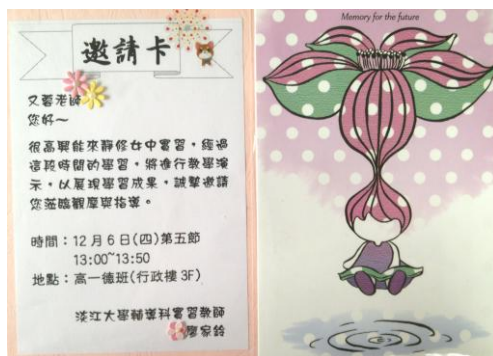 邀請卡
又菱老師
您好~
很高興能來靜修女中實習，經過
這段時間的學習，將進行教學演
示，以展現學習成果，誠摯邀請
您蒞臨觀摩與指導。
時間：12月6日(四)第五節
13:00~13:50
地點：高一德班(行政樓3F)
淡江大學輔導科實習教師
廖家鈴
Memory for the future